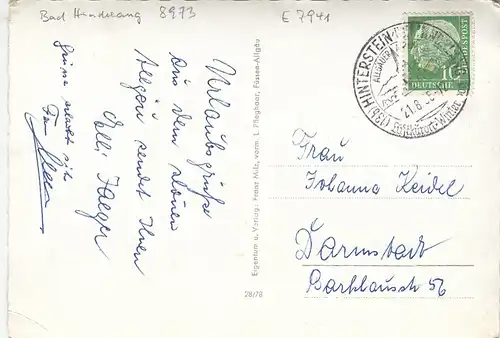 Bad Hindelang 8973
E 7941
Urlaubsgrüße
aus dem schönen
Allgäu sendet Ihnen
Elli Jaeger
Frau
Johanna Keidel
Darmstadt
Barkhausstr 56
Eigentum u. Verlag: Franz Milz, vorm. L. Fleghaar, Füssen-Allgäu
28/78
HINTERSTEIN
21.8.
10
DEUTSCHE BUNDESPOST